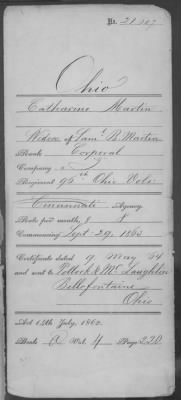 No. 21.307
Ohio
Catharine Martin
Widow of Saml. B. Martin
Rank Corporal
Company
Regiment 96th Ohio Vols.
Cincinnati Agency
Rate per month, $ 8
Commencing Sept. 29, 1863
Certificate dated 9 May '64
and sent to Pollock & McLaughlin
Bellefontaine
Ohio
Act 14th July, 1862.
Book A Vol. 4 Page 220